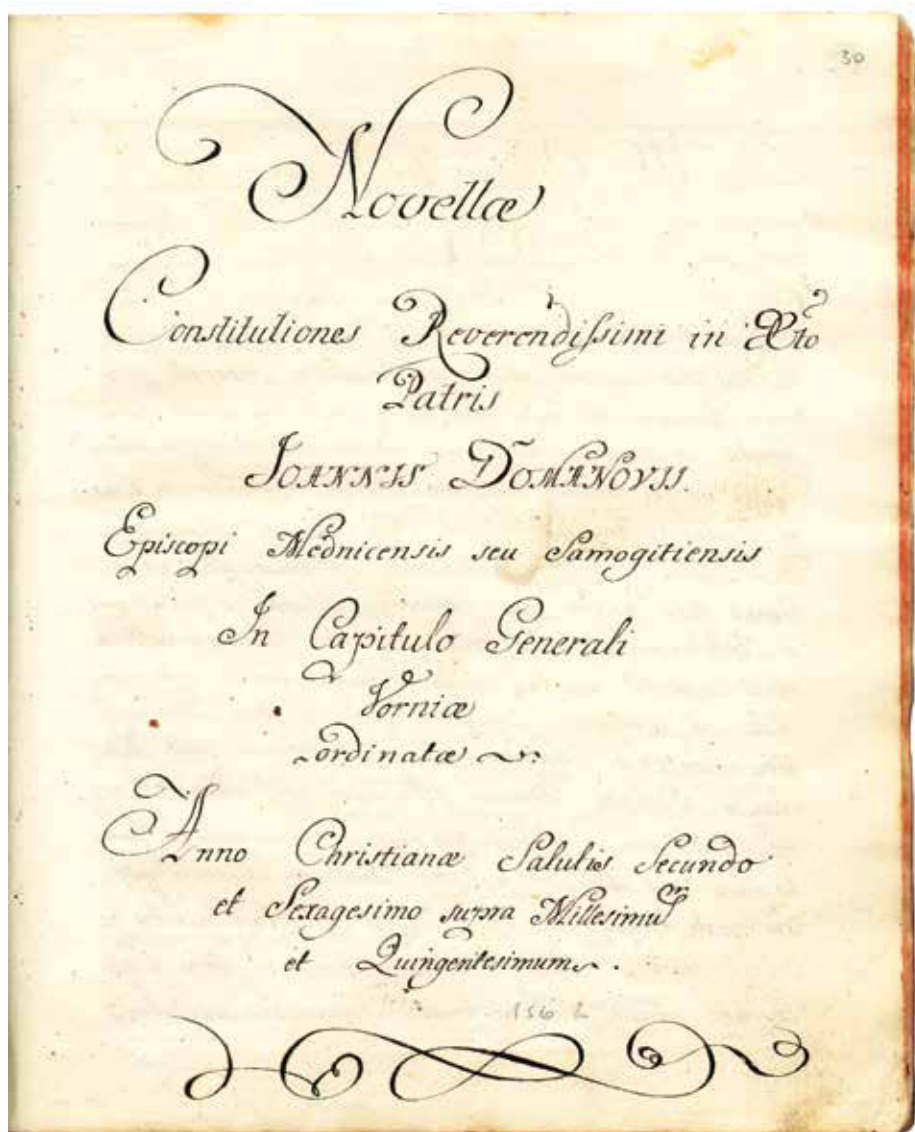 30
Novellæ
Constitutiones Reverendissimi in Xto
Patris
IOANNIS DOMANOVII.
Episcopi Mednicensis seu Samogitiensis
In Capitulo Generali
Vorniæ
ordinatæ
Anno Christianæ Salutis Secundo
et Sexagesimo supra Millesimum
et Quingentesimum.
1562